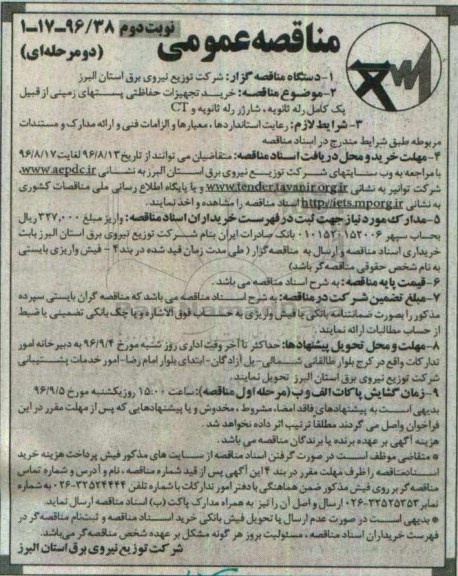 مناقصه عمومی
نوبت دوم ۹۶/۳۸-۱۷-۱
(دو مرحله‌ای)
۱- دستگاه مناقصه گزار: شرکت توزیع نیروی برق استان البرز
۲- موضوع مناقصه: خرید تجهیزات حفاظتی پستهای زمینی از قبیل
پک کامل رله ثانویه، شارژر رله ثانویه و CT
۳- شرایط لازم: رعایت استانداردها، معیارها و الزامات فنی و ارائه مدارک و مستندات
مربوطه طبق شرایط مندرج در اسناد مناقصه
۴- مهلت خرید و محل دریافت اسناد مناقصه: متقاضیان می توانند از تاریخ ۹۶/۸/۱۳ لغایت ۹۶/۸/۱۷
با مراجعه به وب سایتهای شرکت توزیع نیروی برق استان البرز به نشانی www.aepdc.ir،
شرکت توانیر به نشانی www.tender.tavanir.org.ir و یا پایگاه اطلاع رسانی ملی مناقصات کشوری
به نشانی http://iets.mporg.ir اسناد مناقصه را مشاهده و اخذ نمایند.
۵- مدارک مورد نیاز جهت ثبت در فهرست خریداران اسناد مناقصه: واریز مبلغ ۳۲۷,۰۰۰ ریال
بحساب سپهر ۰۱۰۱۵۲۰۱۵۲۰۰۶ بانک صادرات ایران بنام شرکت توزیع نیروی برق استان البرز بابت
خریداری اسناد مناقصه و ارسال به مناقصه گزار (طی مدت زمان قید شده در بند ۴ - فیش واریزی بایستی
به نام شخص حقوقی مناقصه‌گر باشد)
۶- قیمت پایه مناقصه: به شرح اسناد مناقصه می باشد.
۷- مبلغ تضمین شرکت در مناقصه: به شرح اسناد مناقصه می باشد که مناقصه گران بایستی سپرده
مذکور را بصورت ضمانتنامه بانکی یا فیش واریزی به حساب فوق الاشاره و یا چک بانکی تضمینی یا ضبط
از حساب مطالبات ارائه نمایند.
۸- مهلت و محل تحویل پیشنهادها: حداکثر تا آخر وقت اداری روز شنبه مورخ ۹۶/۹/۴ به دبیرخانه امور
تدارکات واقع در کرج بلوار طالقانی شمالی-پل آزادگان-ابتدای بلوار امام رضا-امور خدمات پشتیبانی
شرکت توزیع نیروی برق استان البرز تحویل نمایند.
۹- زمان گشایش پاکات الف و ب (مرحله اول مناقصه): ساعت ۱۵:۰۰ روز یکشنبه مورخ ۹۶/۹/۵
بدیهی است به پیشنهادهای فاقد امضاء، مشروط، مخدوش و یا پیشنهادهایی که پس از مهلت مقرر در این
فراخوان واصل می گردند مطلقا ترتیب اثر داده نخواهد شد.
هزینه آگهی بر عهده برنده یا برندگان مناقصه می باشد.
* متقاضی موظف است در صورت گرفتن اسناد مناقصه از سایت های مذکور فیش پرداخت هزینه خرید
اسناد مناقصه را ظرف مهلت مقرر در بند ۴ این آگهی پس از قید شماره مناقصه، نام و آدرس و شماره تماس
مناقصه گر بر روی فیش مذکور ضمن هماهنگی با دفتر امور تدارکات با شماره تلفن ۳۲۵۲۴۴۴۴-۰۲۶ به شماره
نمابر ۳۲۵۲۵۲۵۳-۰۲۶ ارسال و اصل آن را نیز به همراه مدارک پاکت (ب) اسناد مناقصه ارسال نماید.
* بدیهی است در صورت عدم ارسال یا تحویل فیش بانکی خرید اسناد مناقصه و ثبت نام مناقصه‌گر در
فهرست خریداران اسناد مناقصه، مسئولیت بروز هر گونه مشکل بر عهده شخص مناقصه گر می‌باشد.
شرکت توزیع نیروی برق استان البرز